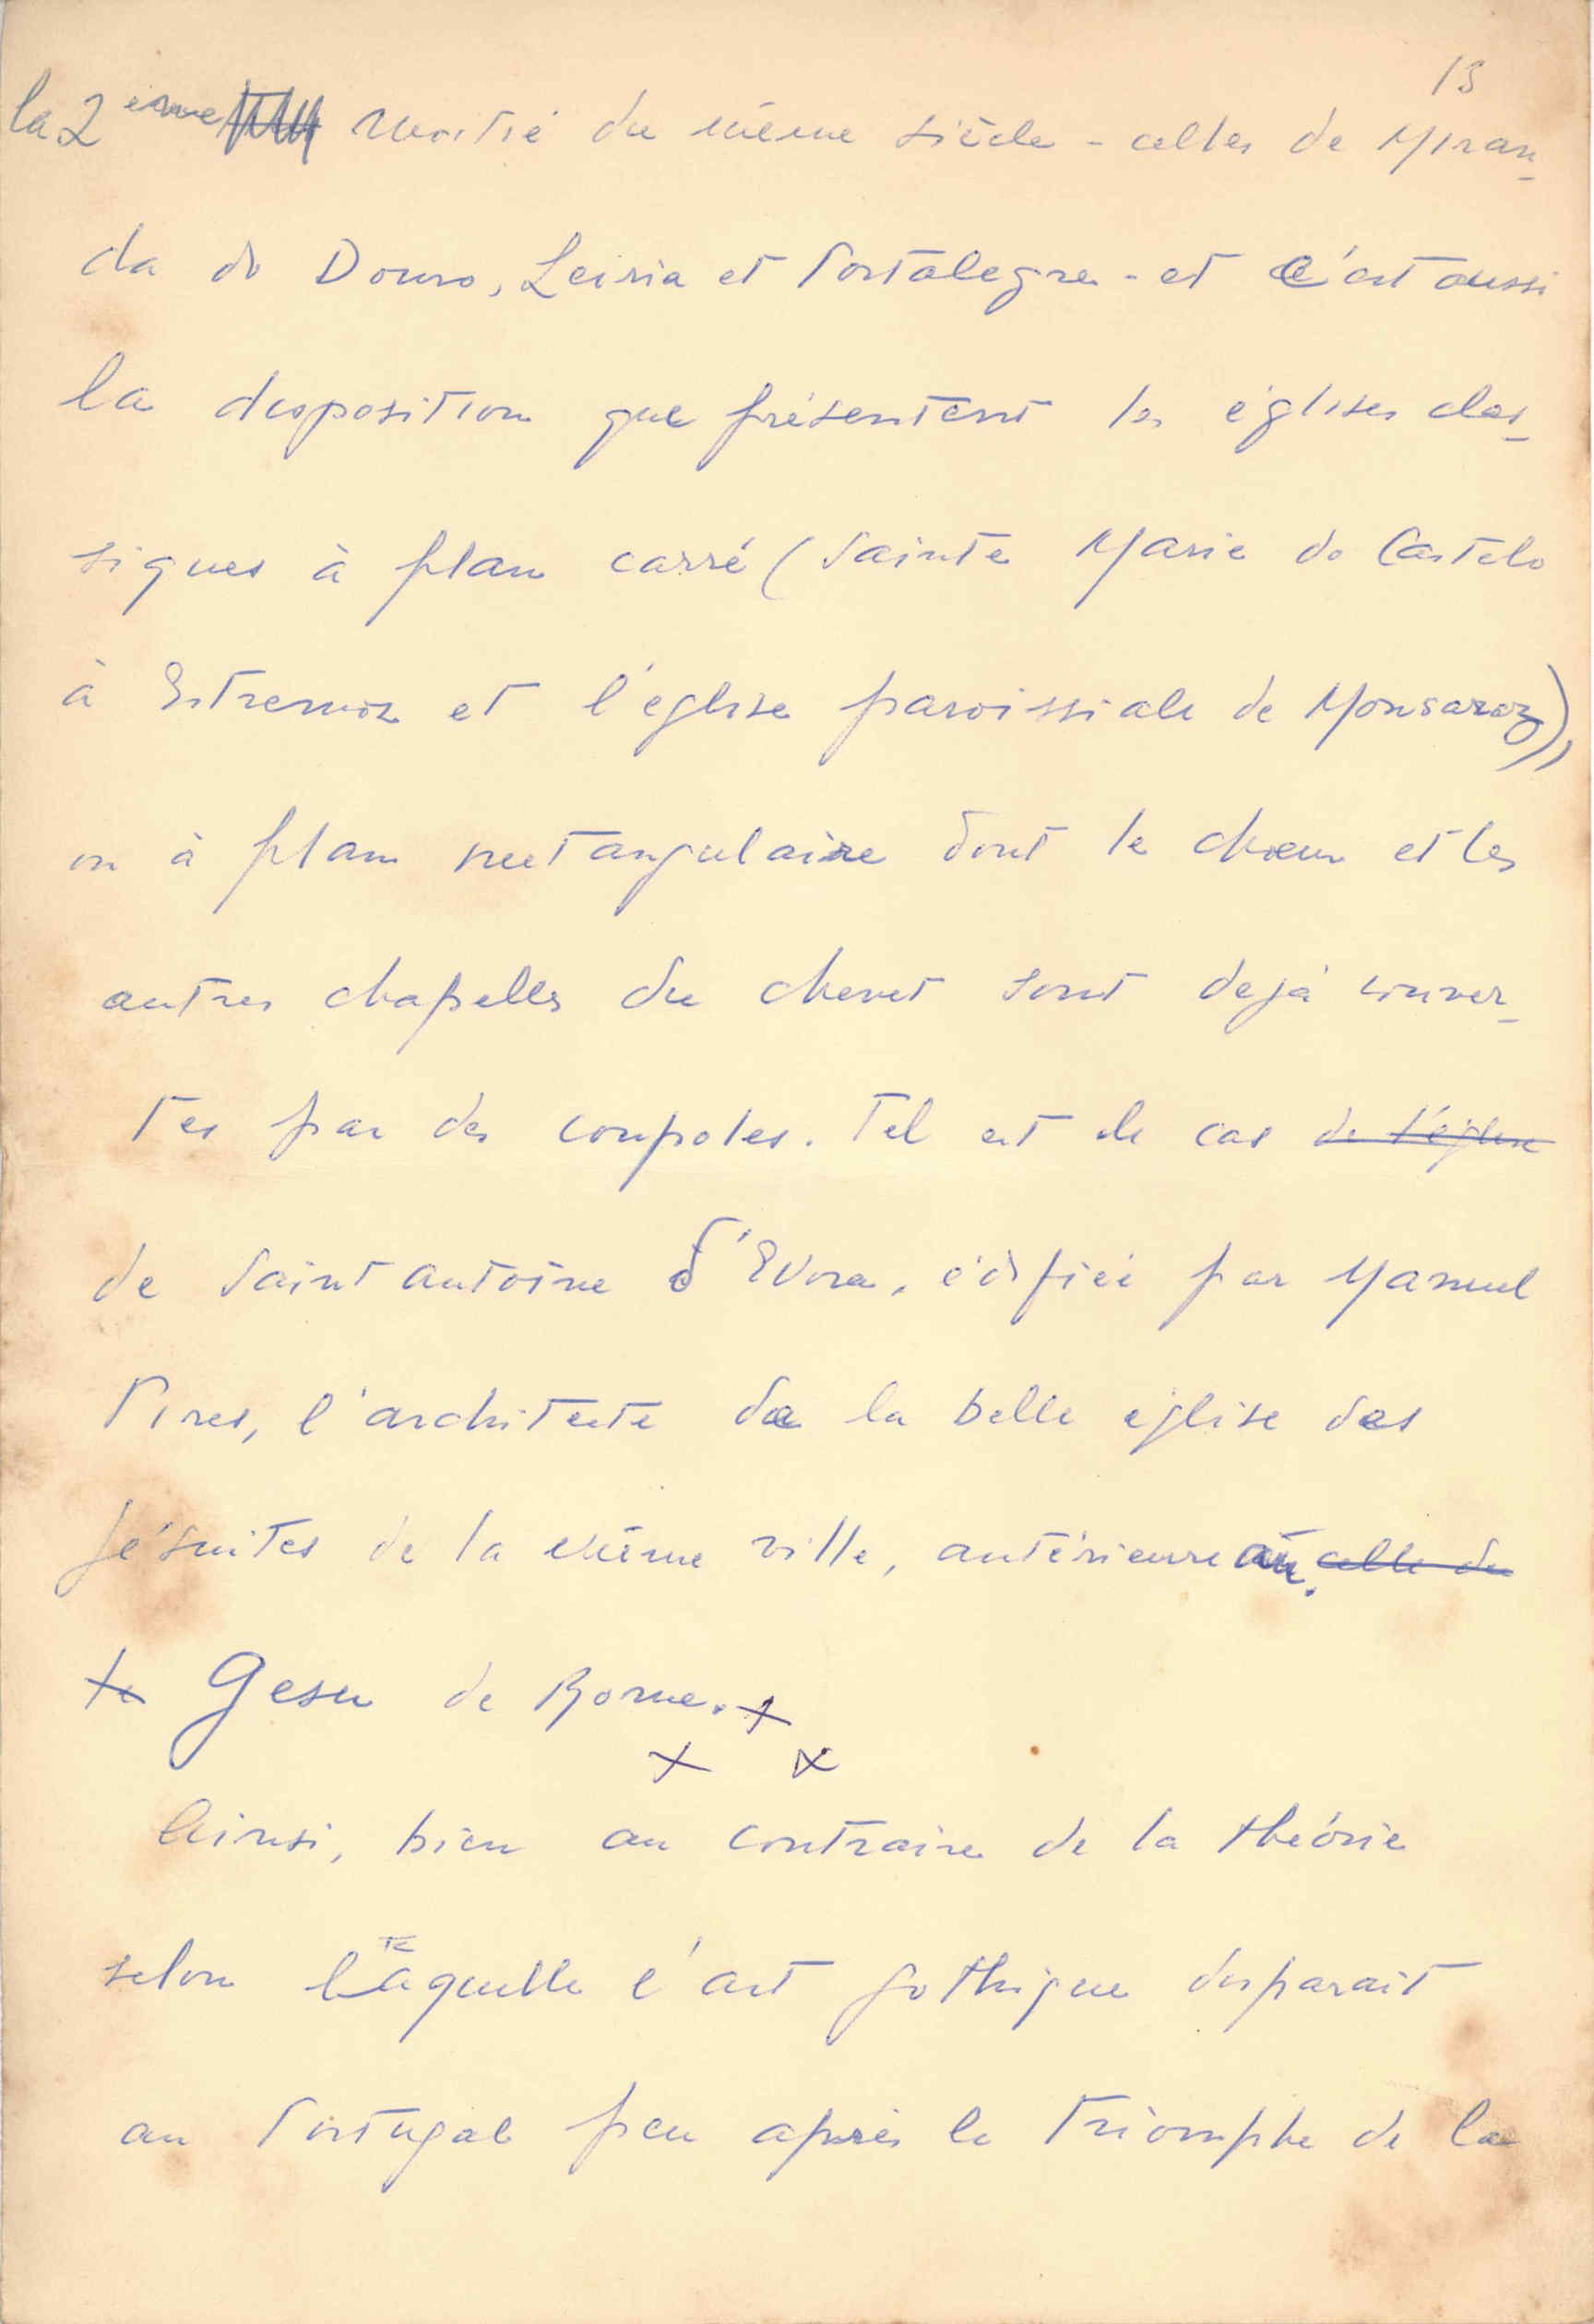 13
la 2ème moitié du même siècle - celles de Miran-
da do Douro, Leiria et Portalegre - et c'est aussi
la disposition que présentent les églises clas-
siques à plan carré (Sainte Marie do Castelo
à Estremoz et l'église paroissiale de Monsaraz),
ou à plan rectangulaire dont le chœur et les
autres chapelles du chevet sont dejà couver-
tes par des coupoles. Tel est le cas de l'église
de Saint Antoine d'Evora, édifiée par Manuel
Pires, l'architecte de la belle église des
Jésuites de la même ville, antérieure au celle du
te Gesu de Rome. +
x x
Ainsi, bien au contraire de la théorie
selon laquelle l'art gothique disparait
au Portugal peu après le triomphe de la